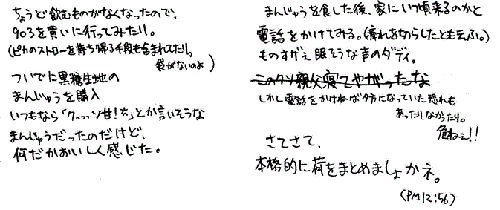 ちょうど飲むものがなくなったので、
903を買いに行ってみた!!。
(ピカのストローを持ち帰る手段も含まれてたり。
袋がないのよ)
ついでに黒糖生地の
まんじゅうを購入
いつもなら「ク…ソ甘!た」とか言いそうな
まんじゅうだったのだけど、
何だかおいしく感じた。
まんじゅうを食した後、家にいつ頃来るのかと
電話をかけてみる。
ものすげぇ眠そうな音のダディ。
このクソ親父寝てやがったな
しかし電話をかけねば夕方になっていた恐れも
あったりなかったり。
危ねぇ!!
さてさて、
本格的に荷をまとめましょかネ。
(PM12:56)